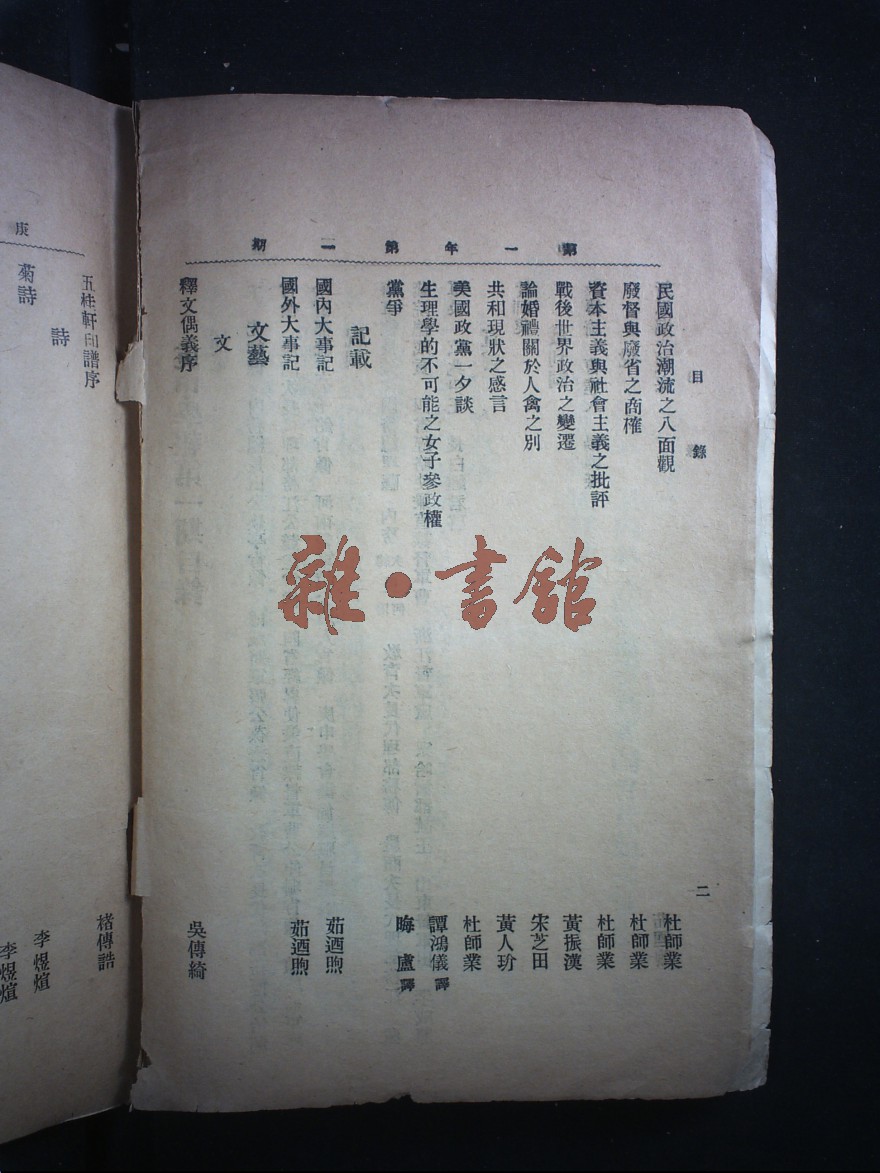 目錄
二
第一年第二期
民國政治潮流之八面觀 杜師業
廢督與廢省之商榷 杜師業
資本主義與社會主義之批評 杜師業
戰後世界政治之變遷 黃振漢
論婚禮關於人禽之別 宋芝田
共和現狀之感言 黃人玠
美國政黨一夕談 杜師業
生理學的不可能之女子參政權 譚鴻儀譯
黨爭 晦盧譯
記載
國內大事記 茹迺煦
國外大事記 茹迺煦
文藝
文
釋文偶義序 吳傳綺
五桂軒印譜序 楮傳誥
詩
李煜煊
菊詩 李煜煊
庚
雜·書館